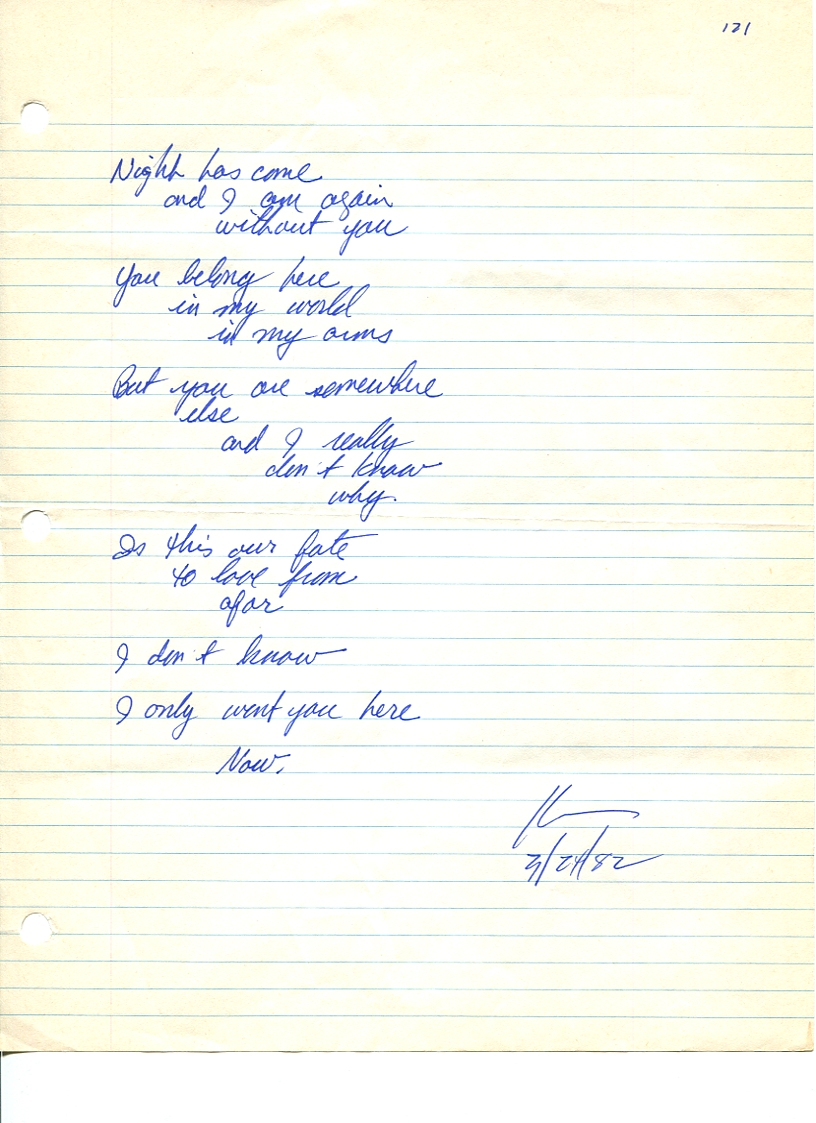 121
Night has come
and I am again
without you
You belong here
in my world
in my arms
But you are somewhere
else
and I really
don't know
why.
Is this our fate
to love from
afar
I don't know
I only want you here
Now.
3/24/82